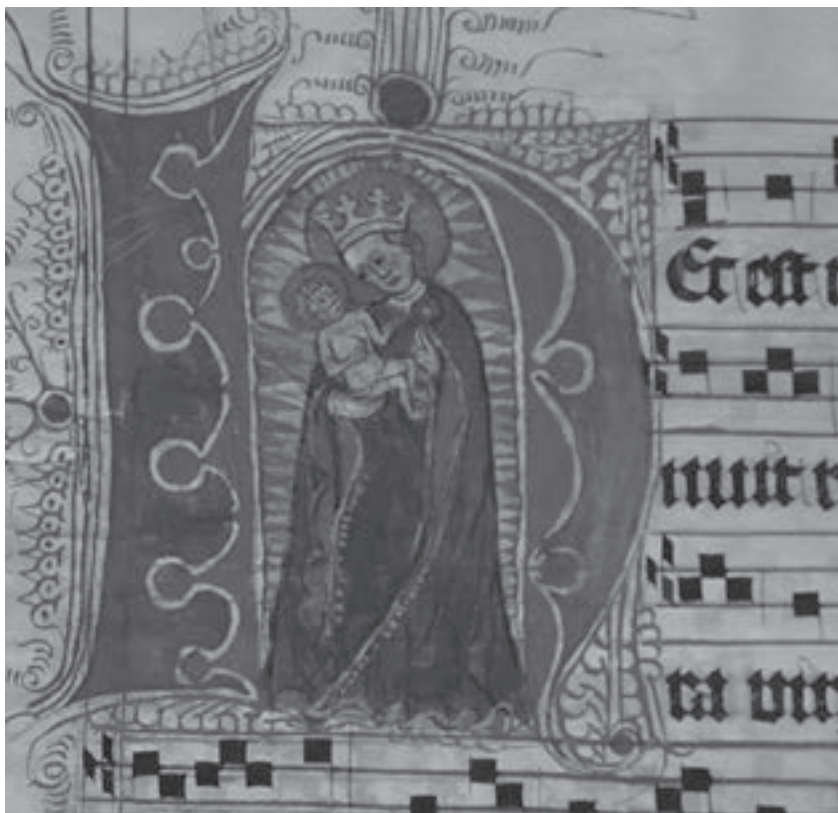 HEc est
nuit r
ra vir